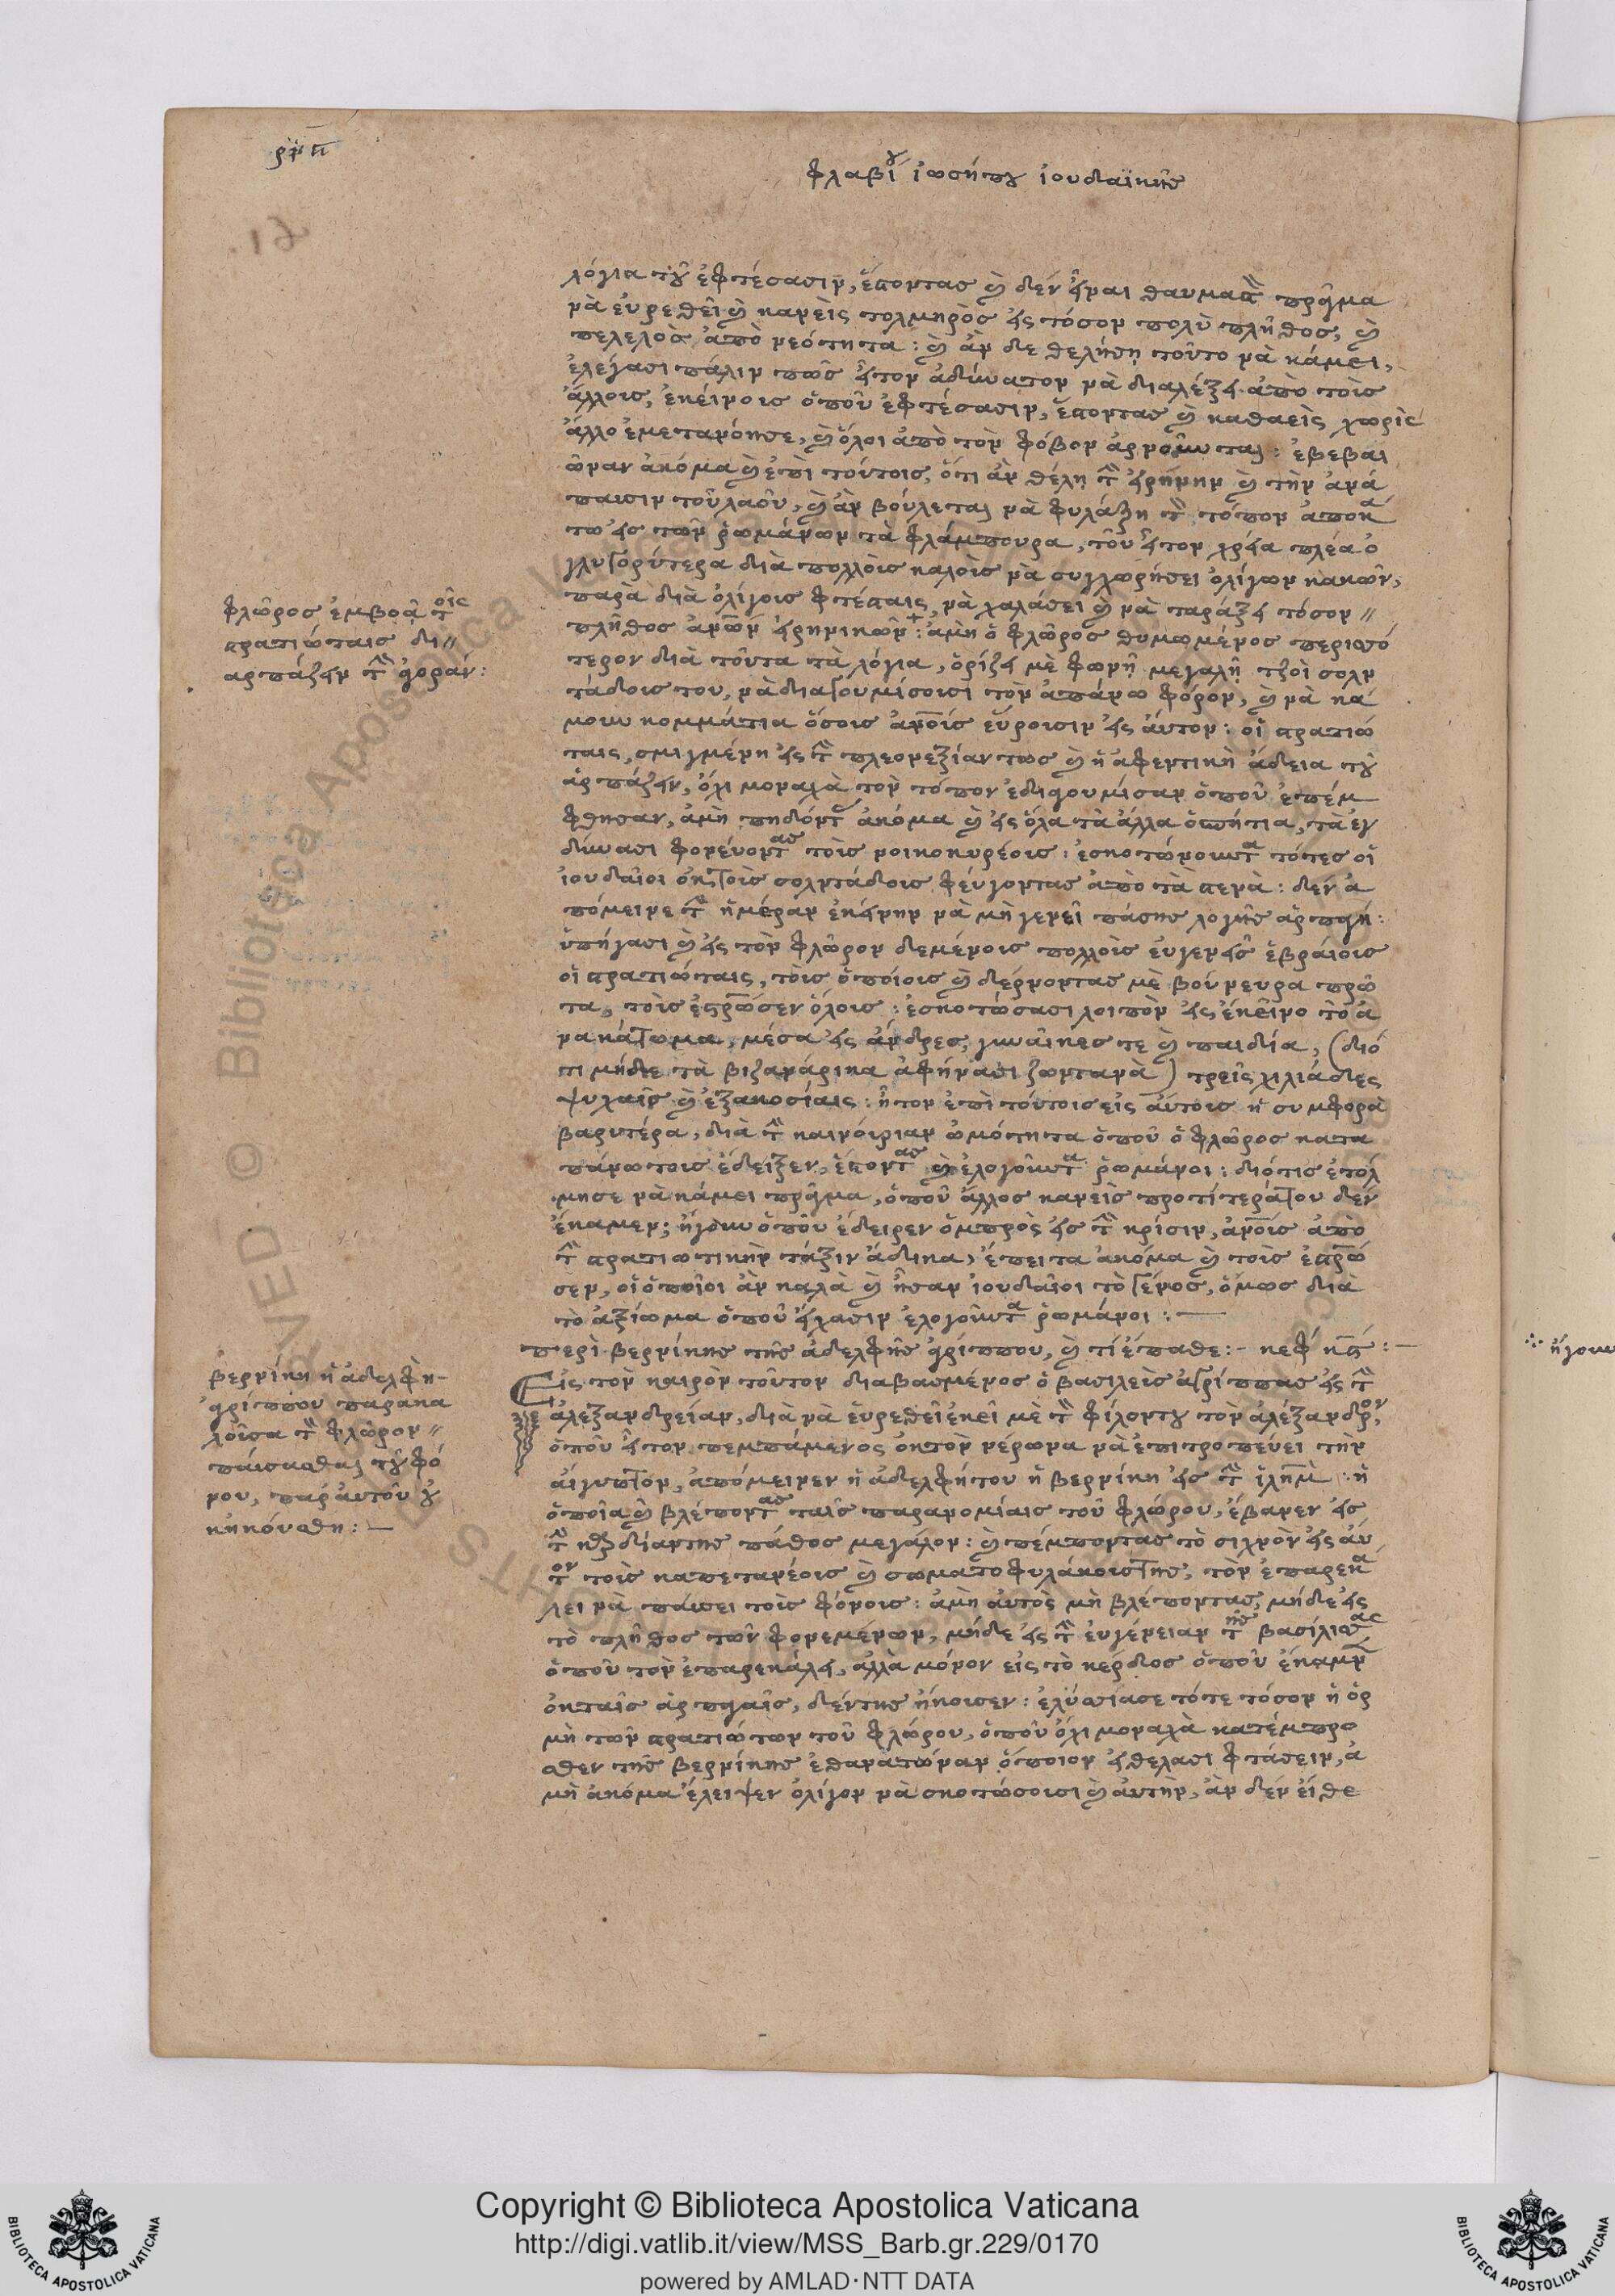 ρμη
φλαβίου ἰωσήπου ἰουδαϊκῆς
16
λόγια τοῦ ἐφτέσασιν, ἔστοντας καὶ δὲν εἶναι θαυμαστὸν πρᾶγμα
νὰ εὑρεθεῖ καὶ κανεὶς τολμηρὸς εἰς τόσον πολὺ πλῆθος, καὶ
πελελὸς ἀπὸ νεότητα: καὶ ἂν δὲ θελήσῃ τοῦτο νὰ κάμει,
ἐλέγασι πάλιν πῶς ἦτον ἀδύνατον νὰ διαλέξει ἀπὸ τοὶς
ἄλλοις, ἐκείνοις ὁποῦ ἐφτέσασιν, ἔστοντας καὶ καθαεὶς χωρὶς
ἄλλο ἐμετανόησε, καὶ ὅλοι ἀπὸ τὸν φόβον ἀρνοῦνται: ἐβεβαι
ῶναν ἀκόμα καὶ ἐπὶ τούτοις, ὅτι ἂν θέλῃ τὴν εἰρήνην καὶ τὴν ἀνά
παυσιν τοῦ λαοῦ, καὶ ἂν βούλεται νὰ φυλάξῃ τὸν τόπον ἀποκά
τω εἰς τῶν ῥωμάνων τὰ φλάμπουρα, τοῦ ἦτον χρεία πλέα ὀ
γλυγορύτερα διὰ πολλοὶς καλοὶς νὰ συγχωρήσει ὀλίγων κακῶν,
παρὰ διὰ ὀλίγοις φτέσταις, νὰ χαλάσει καὶ νὰ ταράξει τόσον //
πλῆθος ἀνθρώπων εἰρηνικῶν +: ἀμὴ ὁ φλῶρος θυμωμένος περισσό
τερον διὰ τοῦτα τὰ λόγια, ὁρίζει μὲ φωνῇ μεγάλῃ τζοὶ σολν
τάδοις του, νὰ διαγουμίσουσι τὸν ἀπάνω φόρον, καὶ νὰ κά
μουν κομμάτια ὅσοις ἀνθρώποις εὕροισιν εἰς αὐτὸν: οἱ στρατιώ
ταις, σμιγμένη εἰς τὴν πλεονεξίαν τως καὶ ἡ ἀφεντικὴ ἄδεια τοῦ
ἁρπάζειν, ὄχι μοναχὰ τὸν τόπον ἐδιαγουμίσαν ὁποῦ ἐπέμ
φθησαν, ἀμὴ πηδόντας ἀκόμα καὶ εἰς ὅλα τὰ ἄλλα ὁσπήτια, τὰ ἐγ
δύνασι φονεύοντας τοὶς νοικοκυρέοις: ἐσκοτώνουντα τότες οἱ
ἰουδαῖοι ὀκ τοὶς σολντάδοις φεύγοντας ἀπὸ τὰ στενὰ: δὲν ἀ
πόμεινε τὴν ἡμέραν ἐκείνην νὰ μὴ γενεῖ πάσης λογῆς ἁρπαγή:
ὑπήγασι καὶ εἰς τὸν φλῶρον δεμένοις πολλοὶς εὐγενεῖς ἑβραίοις
οἱ στρατιώταις, τοὶς ὁποίοις καὶ δέρνοντας μὲ βούνευρα πρῶ
τα, τοὶς ἐσταύρωσεν ὅλοις: ἐσκοτώσασι λοιπὸν εἰς ἐκεῖνο τὸ ἀ
νακάτωμα, μέσα εἰς ἄνδρες, γυναῖκες τε καὶ παιδία, (διό
τι μήδε τὰ βιζανάρικα ἀφήνασι ζωντανὰ) τρεῖς χιλιάδες
ψυχαῖς καὶ ἑξακοσίαις: ἦτον ἐπὶ τούτοις εἰς αὐτοὶς ἡ συμφορὰ
βαρυτέρα, διὰ τὴν καινούριαν ὠμότητα ὁποῦ ὁ φλῶρος κατα
πάνω τοις ἔδειξεν, ἔστοντας καὶ ἐλογοῦντα ῥωμάνοι: διότις ἐτόλ
μησε νὰ κάμει πρᾶγμα, ὁποῦ ἄλλος κανεὶς προτίτερά του δὲν
ἔκαμεν; ἤγουν ὁποῦ ἔδειρεν ὀμπρὸς εἰς τὴν κρίσιν, ἀνθρώποις ἀπὸ
τὴν στρατιωτικὴν τάξιν ἄδικα, ἔπειτα ἀκόμα καὶ τοὶς ἐσταύρω
σεν, οἱ ὁποῖοι ἂν καλὰ καὶ ἦσαν ἰουδαῖοι τὸ γένος, ὅμως διὰ
τὸ ἀξίωμα ὁποῦ εἴχασιν ἐλογοῦντα ῥωμάνοι: —
περὶ βερνίκης τῆς ἀδελφῆς ἀγρίππου, καὶ τί ἔπαθε:- κεφ κϛ: —
Εἰς τὸν καιρὸν τοῦτον διαβασμένος ὁ βασιλεὺς ἀγρίππας εἰς τὴν
ἀλεξανδρείαν, διὰ νὰ εὑρεθεῖ ἐκεῖ μὲ τὸν φίλον του τὸν ἀλέξανδρον,
ὁποῦ ἦτον πεμπάμενος ὀκ τὸν νέρωνα νὰ ἐπιτροπεύει τὴν
αἴγυπτον, ἀπόμεινεν ἡ ἀδελφή του ἡ βερνίκη εἰς τὴν ἰλημ: ἡ
ὁποῖα καὶ βλέποντας ταῖς παρανομίαις τοῦ φλώρου, ἔβανεν εἰς
τὴν καρδίαν της πάθος μεγάλον: καὶ πέμποντας τὸ συχνὸν εἰς αὐ
τὸν τοὶς καπετανέοις καὶ σωματοφυλάκοις της, τὸν ἐπαρεκά
λει νὰ παύσει τοὶς φόνοις: ἀμὴ αὐτὸς μὴ βλέποντας, μήδε εἰς
τὸ πλῆθος τῶν φονεμένων, μήδε εἰς τὴν εὐγένειαν τῆς βασίλισσας
ὁποῦ τὸν ἐπαρεκάλει, ἀλλὰ μόνον εἰς τὸ κέρδος ὁποῦ ἔκαμνε
ὀκ ταῖς ἁρπαγαῖς, δέν της ἤκουσεν: ἐλύσσιασε τότε τόσον ἡ ὁρ
μὴ τῶν στρατιώτων τοῦ φλώρου, ὁποῦ ὄχι μοναχὰ κατέμπρο
σθεν τῆς βερνίκης ἐθανατώναν ὅποιον εἴθελασι φτάσειν, ἀ
μὴ ἀκόμα ἔλειψεν ὀλίγον νὰ σκοτώσουσι καὶ αὐτὴν, ἂν δὲν εἶθε
φλῶρος ἐμβοᾷ τοῖς
στρατιώταις δι//
αρπάζειν τὴν ἀγοράν:
βερνίκη ἡ ἀδελφὴ-
ἀγρίππου παρακα
λοῦσα τὸν φλῶρον //
παύσασθαι τοῦ φό
νου, παρ' αὐτοῦ οὐ
κηκούσθη: —
ἤγουν
Copyright © Biblioteca Apostolica Vaticana
http://digi.vatlib.it/view/MSS_Barb.gr.229/0170
powered by AMLAD·NTT DATA
BIBLIOTECA APOSTOLICA VATICANA
BIBLIOTECA APOSTOLICA VATICANA